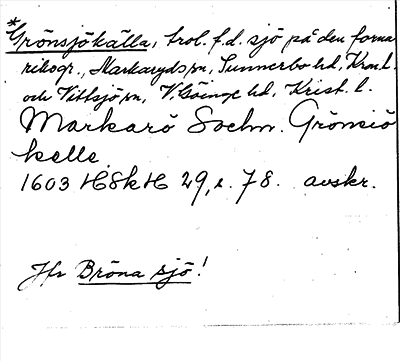 *Grönsjökälla, trol. f.d. sjö på den forna
riksgr., Markaryds sn, Sunnerbo hd, Kron. l.
och Vittsjö sn, V. Göinge hd, Krist. l.
Markarö Sochn. Grönsiö
kelle
1603 HSkH 29, s. 78. avskr.
Jfr Bröna sjö!